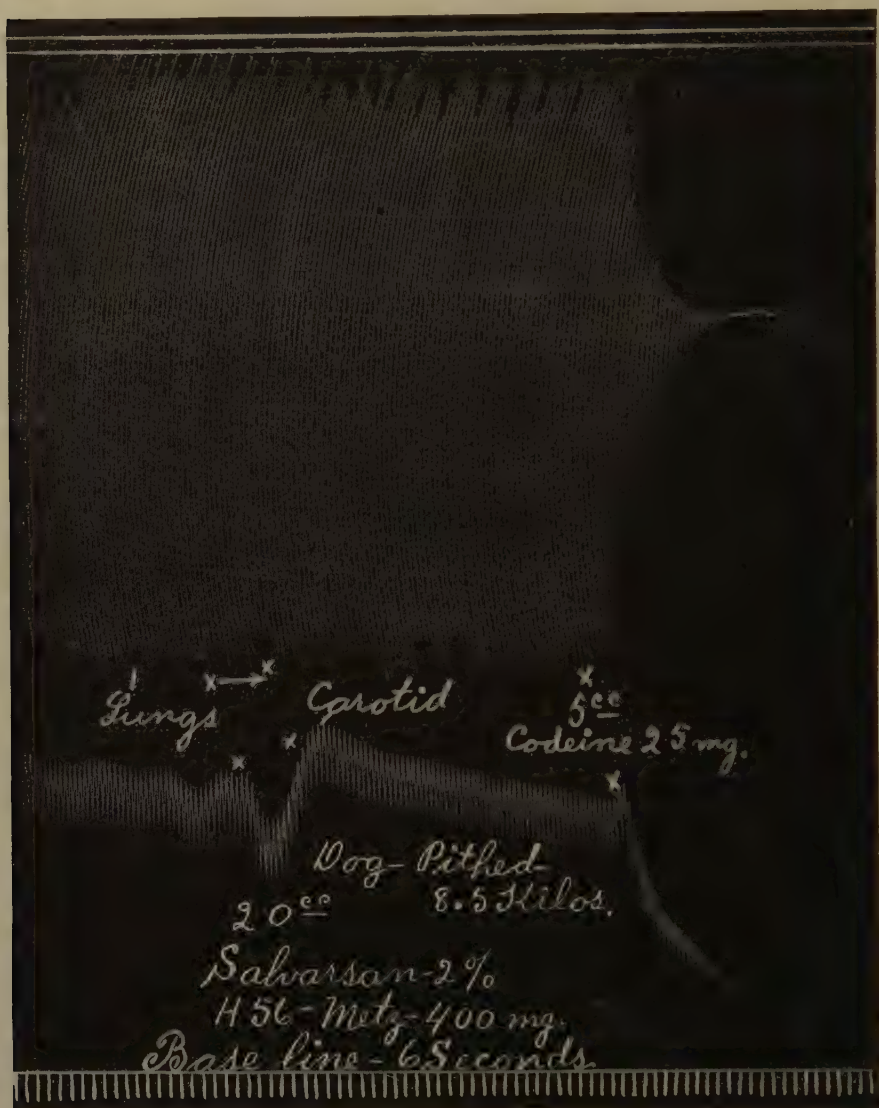 Lungs
Carotid
5cc
Codeine 25 mg.
Dog-Pithed-
8.5 Kilos.
20cc
Salvarsan-2%
H56-Metz-400 mg.
Base line-6 Seconds